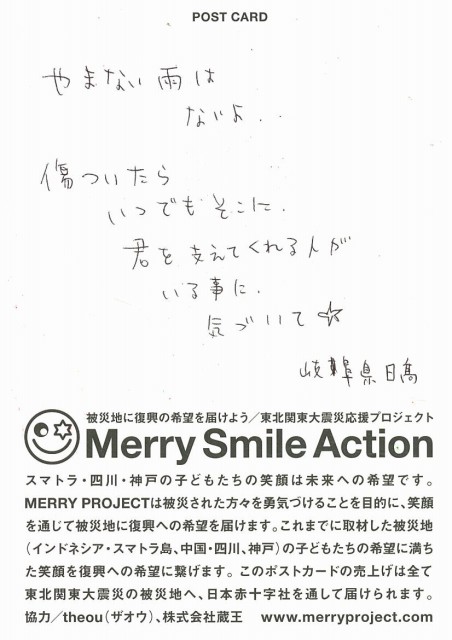 POST CARD
やまない雨は
ないよ..
傷ついたら
いつでもそこに.
君を支えてくれる人が
いる事に.
気づいて☆
岐阜県日高
被災地に復興の希望を届けよう／東北関東大震災応援プロジェクト
Merry Smile Action
スマトラ・四川・神戸の子どもたちの笑顔は未来への希望です。
MERRY PROJECTは被災された方々を勇気づけることを目的に、笑顔
を通じて被災地に復興への希望を届けます。これまでに取材した被災地
（インドネシア・スマトラ島、中国・四川、神戸）の子どもたちの希望に満ち
た笑顔を復興への希望に繋げます。このポストカードの売上げは全て
東北関東大震災の被災地へ、日本赤十字社を通して届けられます。
協力／theou（ザオウ）、株式会社蔵王 www.merryproject.com